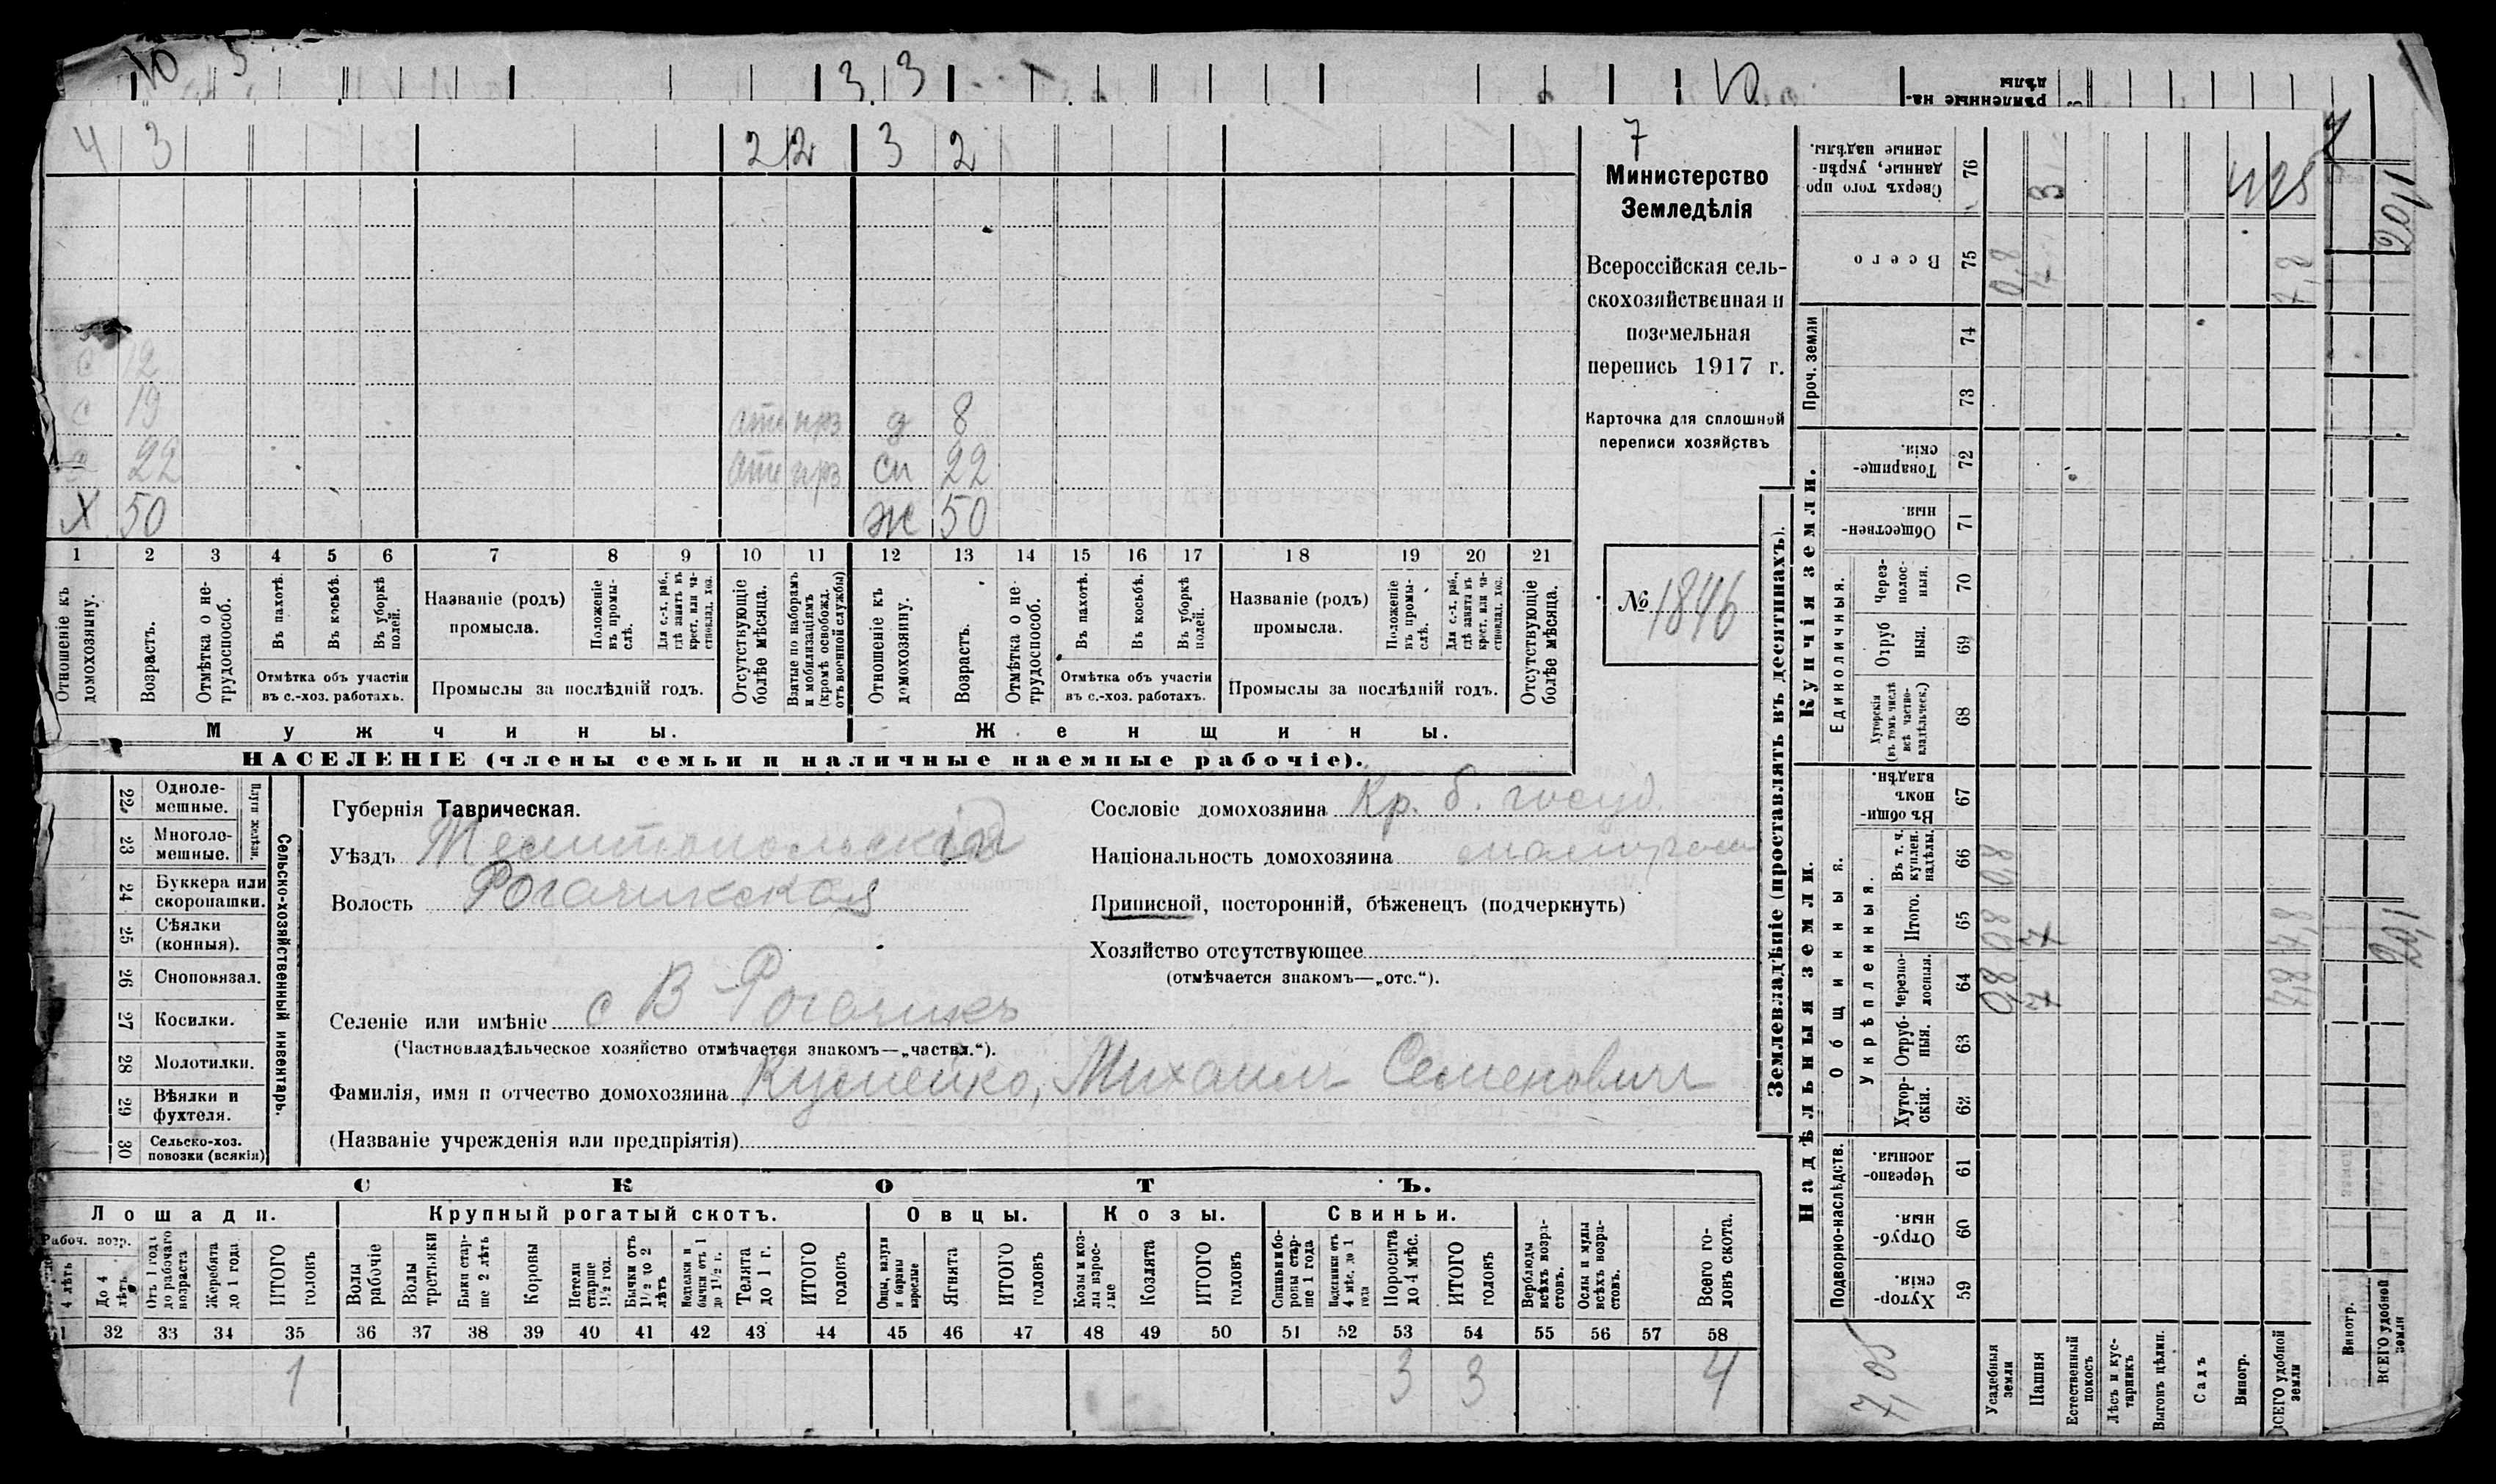 10 5 3 3
рѣпленные на-
дѣлы
4 3 2 2 3 2
с 12
с 19 отс прз д 8
с 22 отс прз сн 22
Х 50 ж 50
1 2 3 4 5 6 7 8 9 10 11 12 13 14 15 16 17 18 19 20 21
Отношеніе къ домохозяину.
Возрастъ.
Отмѣтка о не-трудоспособ.
Въ пахотѣ.
Въ косьбѣ.
Въ уборкѣ полей.
Отмѣтка объ участіи въ с.-хоз. работахъ.
Названіе (родъ) промысла.
Положеніе въ промы-слѣ.
Для с.-х. раб., гдѣ занятъ въ крест. или ча-стновлад. хоз.
Промыслы за послѣдній годъ.
Отсутствующіе болѣе мѣсяца.
Взятые по наборамъ и мобилизаціямъ (кромѣ освобожд. отъ военной службы)
Отношеніе къ домохозяину.
Возрастъ.
Отмѣтка о не-трудоспособ.
Въ пахотѣ.
Въ косьбѣ.
Въ уборкѣ полей.
Отмѣтка объ участіи въ с.-хоз. работахъ.
Названіе (родъ) промысла.
Положеніе въ промы-слѣ.
Для с.-х. раб., гдѣ занята въ крест. или ча-стновлад. хоз.
Промыслы за послѣдній годъ.
Отсутствующіе болѣе мѣсяца.
Мужчины. Женщины.
НАСЕЛЕНІЕ (члены семьи и наличные наемные рабочіе).
7
Министерство
Земледѣлія
Всероссійская сель-
скохозяйственная и
поземельная
перепись 1917 г.
Карточка для сплошной
переписи хозяйствъ
№ 1846
Сельско-хозяйственный инвентарь.
Плуги желѣзн.
22 Одноле-мешные.
23 Многоле-мешные.
24 Буккера или скоропашки.
25 Сѣялки (конныя).
26 Сноповязал.
27 Косилки.
28 Молотилки.
29 Вѣялки и фухтеля.
30 Сельско-хоз. повозки (всякія)
Губернія Таврическая.
Уѣздъ Мелитопольскій
Волость Рогачикская
Селеніе или имѣніе с В Рогачикъ
(Частновладѣльческое хозяйство отмѣчается знакомъ—„частвл.“).
Фамилія, имя и отчество домохозяина Михаилъ Семеновичъ
(Названіе учрежденія или предпріятія)
Сословіе домохозяина Кр. б. госуд.
Національность домохозяина малоросс
Приписной, посторонній, бѣженецъ (подчеркнуть)
Хозяйство отсутствующее
(отмѣчается знакомъ—„отс.“).
СКОТЪ.
Лошади. Крупный рогатый скотъ. Овцы. Козы. Свиньи.
Рабоч. возр.
4 лѣтъ
До 4 лѣтъ
Отъ 1 года до рабочаго возраста
Жеребята до 1 года
ИТОГО головъ
Волы рабочіе
Волы третьяки
Быки стар-ше 2 лѣтъ
Коровы
Нетели старше 1½ год.
Бычки отъ 1½ до 2 лѣтъ
Телята до 1 г.
ИТОГО головъ
Овцы, валухи и бараны взрослые
Ягнята
ИТОГО головъ
Козы и коз-лы взрос-лые
Козлята
ИТОГО головъ
Свиньи и бо-ровы стар-ше 1 года
Подсвинки отъ 4 мѣс. до 1 года
Поросята до 4 мѣс.
ИТОГО головъ
Верблюды всѣхъ возра-стовъ.
Ослы и мулы всѣхъ возра-стовъ.
Всего го-ловъ скота.
32 33 34 35 36 37 38 39 40 41 42 43 44 45 46 47 48 49 50 51 52 53 54 55 56 57 58
1 3 3 4
Землевладѣніе (проставлять въ десятинахъ).
Надѣльныя земли. Купчія земли. Проч. земли
Подворно-наслѣдств.
Общинныя.
Укрѣпленныя.
Единоличныя.
59 Хутор-скія.
60 Отруб-ныя.
61 Черезпо-лосныя.
62 Хутор-скія.
63 Отруб-ныя.
64 Черезпо-лосныя.
65 Итого.
66 Въ т. ч. куплен. надѣлы.
67 Въ общи-номъ владѣн.
68 Хуторскія (въ томъ числѣ всѣ частно-владѣльческ.)
69 Отруб ныя.
70 Через-полос-ныя.
71 Обществен-ныя.
72 Товарище-скія.
73
74
75 Всего
76 Сверхъ того про данные, укрѣп-ленные надѣлы.
Усадебныя земли
Пашня
Естественный покосъ
Лѣсъ и кус-тарникъ
Выгонъ цѣлин.
Садъ
Виногр.
ВСЕГО удобной земли
7,8
Виногр.
ВСЕГО удобной земли